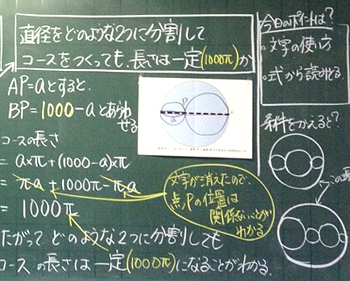 直径をどのような2つに分割して
コースをつくっても、長さは一定(1000π)か
AP=aとすると、
BP=1000-aとあらわ
せる
コースの長さ
a×π+(1000-a)×π
= πa+1000π-πa
= 1000π
たがって どのような2つに分割しても
コースの長さは一定(1000π)になることがわかる.
文字が消えたので
点Pの位置は
関係ないことが
わかる
P
今日のポイントは?
・文字の使い方
・式から読みとる
条件をかえると?